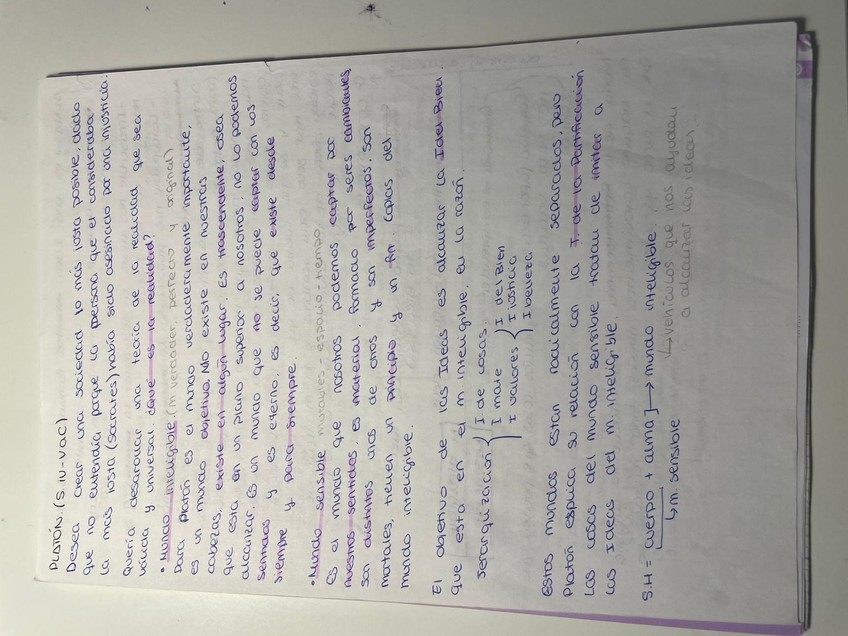 PLATÓN. (S. IV-V a.C)
Desea crear una sociedad lo más josta posible, dado
que no entendía porque la persona que el consideraba
la más josta (Socrates) había sido asesinado por una injusticia.
Quería desarrollar una teoría de la realidad que sea
válida y universal. ¿Qué es la realidad?
• Mundo inteligible. (m. verdader, perfecto y original)
Para Platón es el mundo verdaderamente importante,
es un mundo objetivo. No existe en nuestras
cabezas, existe en algún lugar. Es trascendente, osea
que esta en un plano superior a nosotros, no lo podemos
alcanzar. Es un mundo que no se puede captar con los
sentidos y es eterno, es decir, que existe desde
siempre y para siempre.
• Mundo sensible espacio-tiempo.
Es el mundo que nosotros podemos captar por
nuestros sentidos, es material. Formado por seres cambiantes,
son distintos unos de otros y son imperfectos. Son
mortales, tienen un principio y un fin. Copias del
mundo inteligible.
El objetivo de las Ideas es alcanzar la I del Bien.
que esta en el m. inteligible, en la razón.
Jerarquización { I de cosas
I mate
I valores { I del Bien
I justicia
I belleza
Estos mundos estan radicalmente separados, pero
Platón explica su relación con la T. de la Partificación
Las cosas del mundo sensible tratan de imitar a
las Ideas del m. inteligible.
S.H = cuerpo + alma] → mundo inteligible.
↳ m. sensible
↳ vehículos que nos ayudan
a alcanzar las ideas.